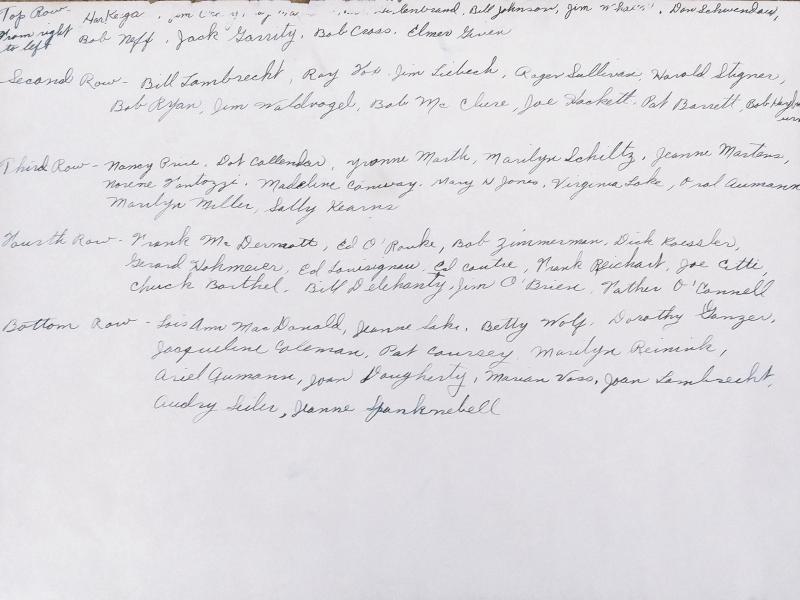 Top Row- Bill Johnson, Jim Don Schwendau,
From right to left Bob Neff, Jack Garrity, Bob Cross, Elmer Gwen
Second Row- Bill Lambrecht, Ray Fox, Jim Liebeck, Roger Sullivan, Harold Stegner,
Bob Ryan, Jim Waldvogel, Bob Mc Clure, Joe Hackett, Pat Barrett, Bob
Third Row- Nancy Price, Dot Callendar, Yvonne Marth, Marilyn Schiltz, Jeanne Martens,
Norene Fantozzi, Madeline Conway, Mary N Jones, Virginia Lake, Oral Aumann
Marilyn Miller, Sally Kearns
Fourth Row- Frank Mc Dermott, Ed O'Rouke, Bob Zimmerman, Dick Koessler,
Gerard Hohmeier, Ed Louisignau, Ed Coutre, Frank Reichart, Joe Citti,
Chuck Barthel, Bill Delehanty, Jim O'Brien, Father O'Connell
Bottom Row- Lois Ann MacDonald, Jeanne Lake, Betty Wolf, Dorothy Ganzer,
Jacqueline Coleman, Pat Coursey, Marilyn Reimink,
Ariel Aumann, Joan Dougherty, Marian Voss, Joan Lambrecht,
Audry Seiler, Jeanne Spanknebell